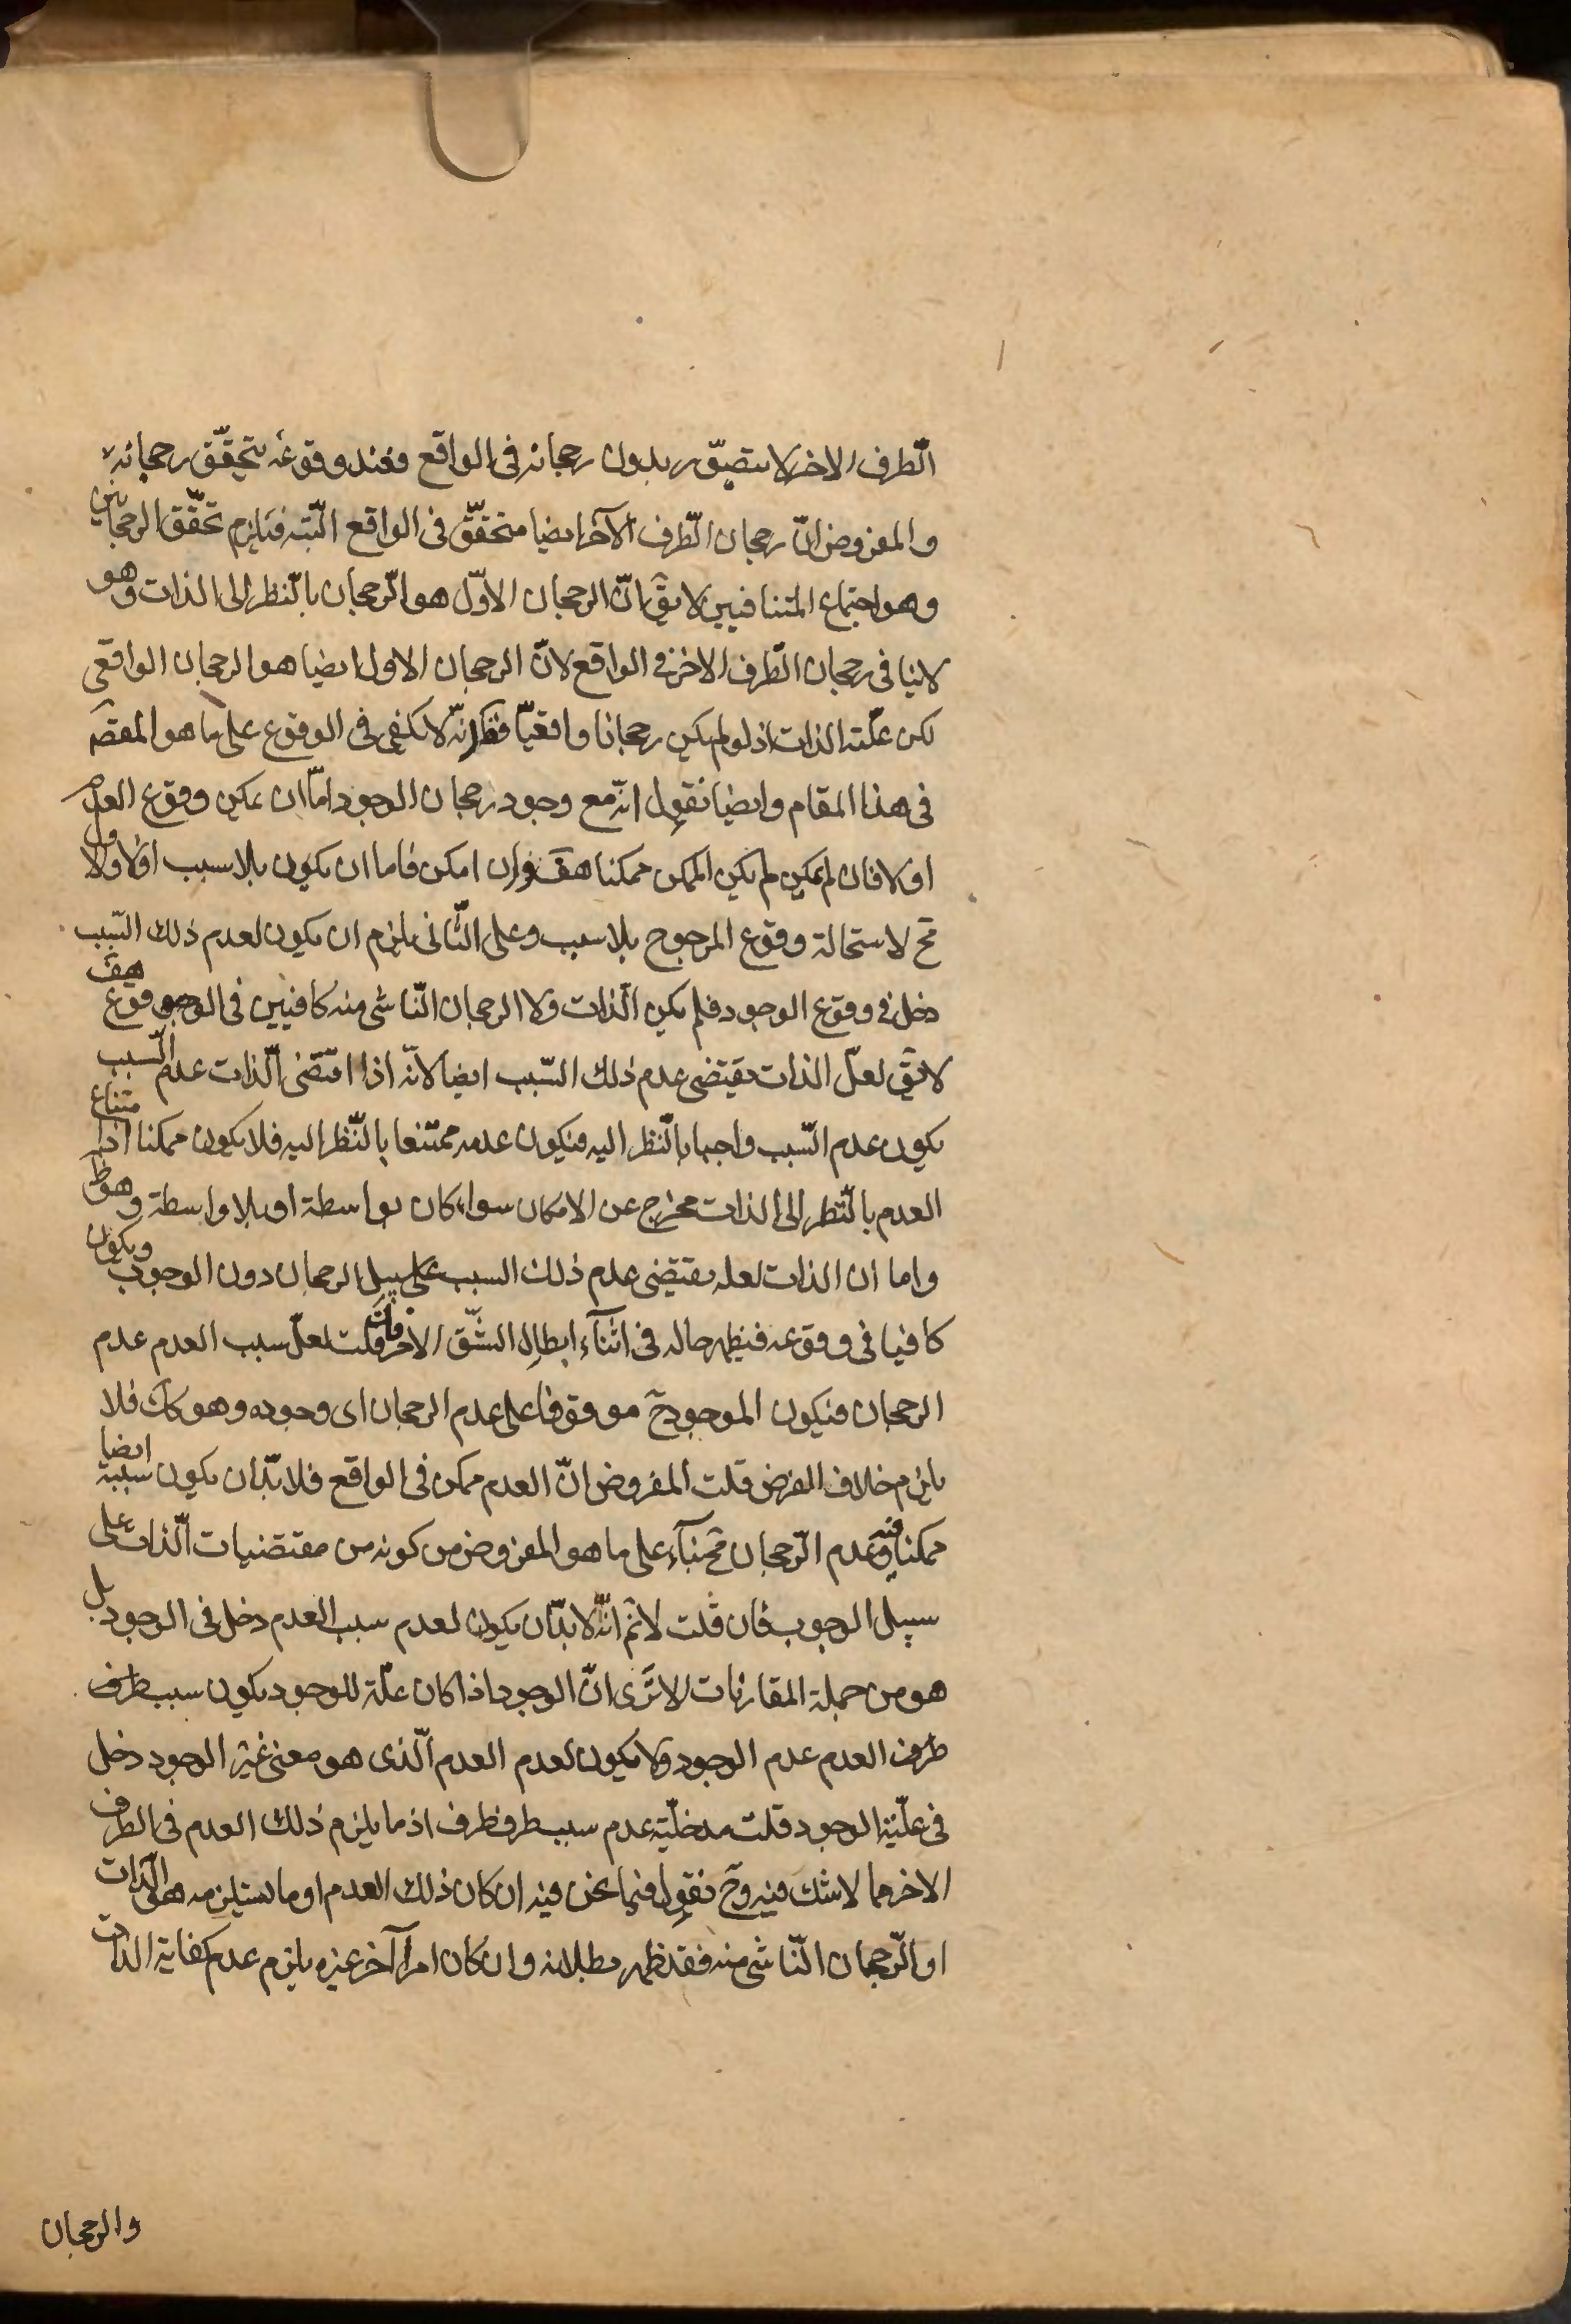 الطرف الاخر لا يتصوّر بدون رجحانه فى الواقع فعند وقوعه يتحقّق رجحانه
والمفروض انّ رجحان الطّرف الآخر ايضا متحقّق فى الواقع البتّه فيلزم تحقّق الرجحانين
وهو اجتماع المتنافيين لا يقّ انّ الرجحان الاوّل هو الرّجحان بالنّظر الى الذات وهو
لا ينافى رجحان الطّرف الاخر فى الواقع لانّ الرجحان الاول ايضا هو الرجحان الواقعى
لكن علّته الذات اذ لو لم يكن رجحانا واقعيّا فظ انّه لا يكفى فى الوقوع على ما هو المقصَم
فى هذا المقام وايضا نقول انّه مع وجود رجحان الوجود امّا ان يمكن وقوع العدم
اولا فان لم يمكن لم يكن الممكن ممكنا هف وان امكن فاما ان يكون بلا سبب اولا والاول
مح لاستحالة وقوع المرجوح بلا سبب وعلى الثّانى يلزم ان يكون لعدم ذلك السّبب
دخل فى وقوع الوجود فلم يكن الذات ولا الرجحان النّاشى منه كافيين فى الوقوع هف
لا يقّ لعلّ الذات يقتضى عدم ذلك السّبب ايضا لانّه اذا اقتضى الذات عدم السّبب
يكون عدم السّبب واجبا بالنّظر اليه فيكون عدمه ممتنعا بالنّظر اليه فلا يكون ممكنا اذ امتناع
العدم بالنّظر الى الذات مخرج عن الامكان سواء كان بواسطة او بلا واسطة وهو ظ
واما ان الذات لعله يقتضى عدم ذلك السبب على سبيل الرجحان دون الوجوب ويكون
كافيا فى وقوعه فيظهر حاله فى اثنآء ابطال الشّق الآخر فان قلت لعلّ سبب العدم عدم
الرجحان فيكون الموجود ح موقوفا على عدم الرجحان اى وجوده وهو كاف فلا
يلزم خلاف الفرض قلت المفروض انّ العدم ممكن فى الواقع فلا بدّ ان يكون سببه ايضا
ممكنا فيه وعدم الرّجحان مح بنآء على ما هو المفروض من كونه من مقتضيات الذات على
سبيل الوجوب فان قلت لا نم انّه لا بدّ ان يكون لعدم سبب العدم دخل فى الوجود بل
هو من جملة المقارنات الا ترى انّ الوجود اذا كان علّة للوجود يكون سبب طرف
طرف العدم عدم الوجود ولا يكون لعدم العدم الّذى هو معنى غير الوجود دخل
فى علّيّة الوجود قلت مدخليّة عدم سبب طرف طرف اذ ما يلزم ذلك العدم فى الطرف
الاخر مما لا شك فيه وح نقول فيما نحن فيه ان كان ذلك العدم او ما يستلزمه هو الذات
او الرّجحان النّاشى منه فقد ظهر بطلانه وان كان امرا آخر غيره يلزم عدم كفاية الذات
والرجحان